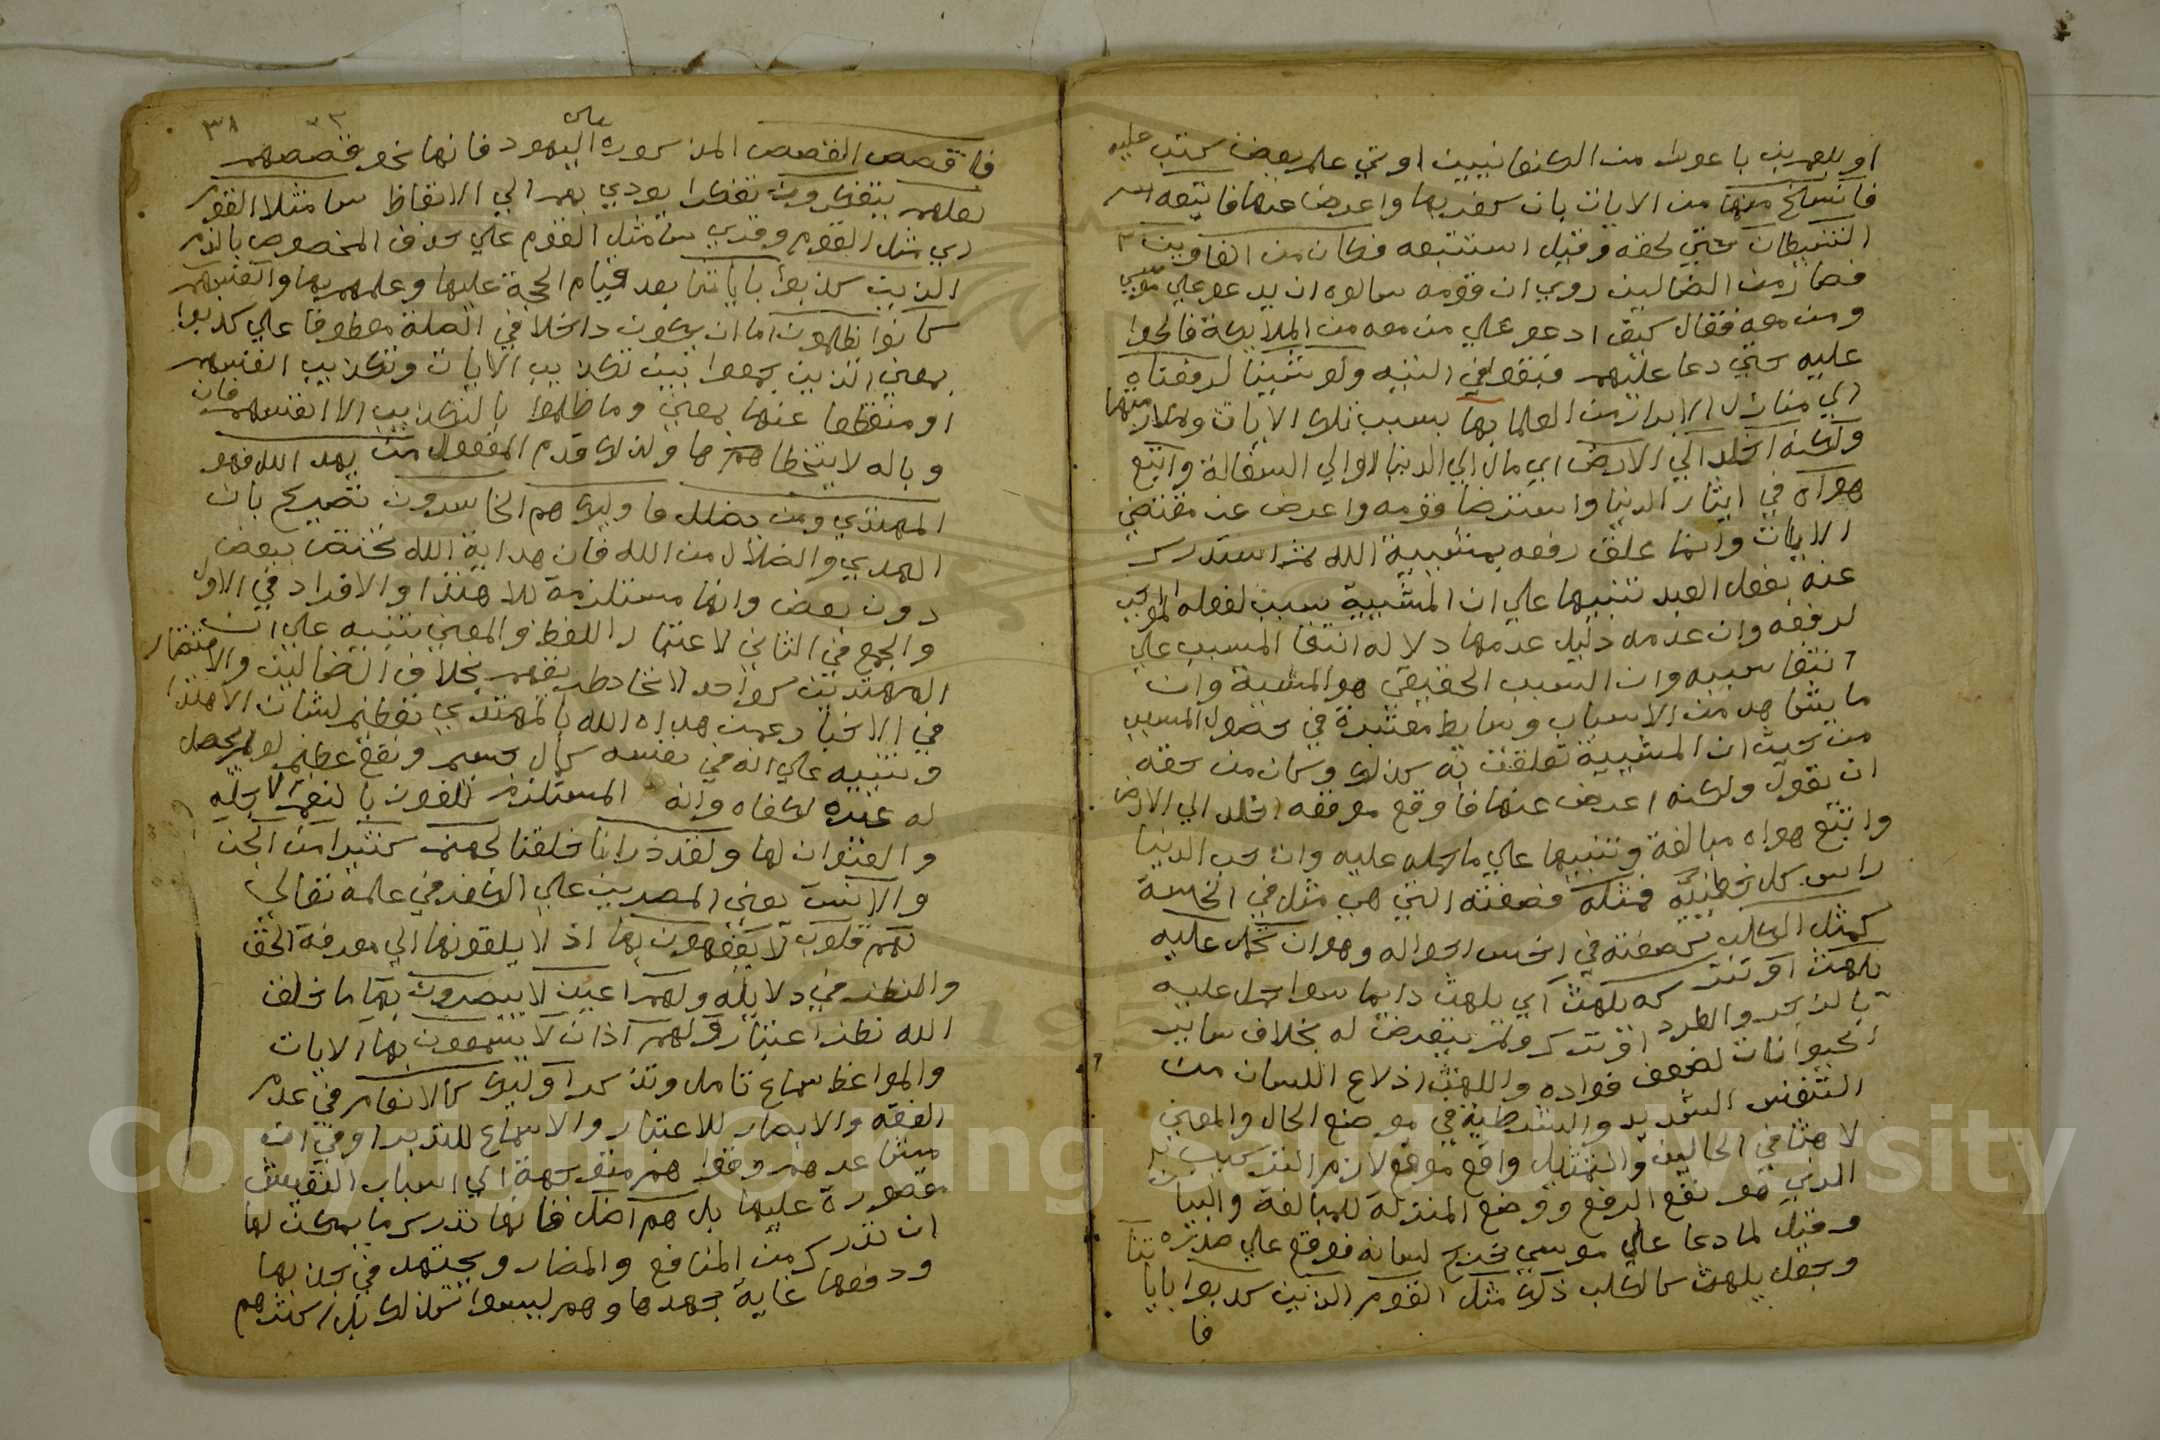 او بلعم بن باعورا من الكنعانيين اوتي علم بعض كتب
فانسلخ منها من الايات بان كفر بها واعرض عنها فاتبعه
الشيطان حتي لحقه وقيل استتبعه فكان من الغاوين
فصار من الضالين روي ان قومه سالوه ان يدعو علي موسي
ومن معه فقال كيف ادعو علي من معه من الملايكة فالحوا
عليه حتي دعا عليهم فبقوا في التيه ولو شئينا لرفعناه
الي منازل الابرار من العلما بها بسبب تلك الايات وملازمتها
ولكنه اخلد الي الارض اي مال الي الدنيا او الي السفالة واتبع
هواه في ايثار الدنيا واسترضا قومه واعرض عن مقتضي
الايات وانما علق رفعه بمشيية الله ثم استدرك
عنه بفعل العبد تنبيها علي ان المشيية سبب لفعله الموجب
لرفعه وان عدمه دليل عدمها دلالة انتفا المسبب علي
انتفا سببه وان السبب الحقيقي هو المشية وان
ما يشاهد من الاسباب وسايط معتبرة في حصول المسبب
من حيث ان المشيية تعلقت به كذلك وكان من حقه
ان يقول ولكنه اعرض عنها فاوقع موقعه اخلد الي الارض
واتبع هواه مبالغة وتنبيها علي ما حمله عليه وان حب الدنيا
راس كل خطيئة فمثله فصفته التي هي مثل في الخسة
كمثل الكلب كصفته في اخس احواله وهو ان تحمل عليه
يلهث او تتركه يلهث اي يلهث دايما سوا حمل عليه
بالزجر والطرد او ترك ولم يتعرض له بخلاف ساير
الحيوانات لضعف فواده واللهث اذلاع اللسان من
التنفس الشديد والشرطية في موضع الحال والمعني
لاهثا في الحالين والتمثيل واقع موقع لازم التركيب
الذي هو نفي الرفع ووضع المنزلة للمبالغة والبيان
وقيل لما دعا علي موسي خرج لسانه فوقع علي صدره
وجعل يلهث كالكلب ذلك مثل القوم الذين كذبوا باياتنا
فا
٣٨
فاقصص القصص المذكورة علي اليهود فانها نحو قصصهم
لعلهم يتفكرون تفكرا يودي بهم الي الاتعاظ سا مثلا القوم
اي مثل القوم وقري سا مثل القوم علي حذف المخصوص بالذم
الذين كذبوا باياتنا بعد قيام الحجة عليها وعلمهم بها وانفسهم
كانوا يظلمون اما ان يكون داخلا في الصلة معطوفا علي كذبوا
بمعني الذين جمعوا بين تكذيب الايات وتكذيب انفسهم
او منقطعا عنها بمعني وما ظلموا بالتكذيب الا انفسهم فان
وباله لا يتخطاهم ولذلك قدم المفعول من يهد الله فهو
المهتدي ومن يضلل فاوليك هم الخاسرون تصريح بان
الهدي والضلال من الله فان هداية الله تختص ببعض
دون بعض وانها مستلزمة للاهتدا والافراد في الاول
والجمع في الثاني لاعتبار اللفظ والمعني تنبيه علي ان
المهتدين كواحد لاتحاد طريقهم بخلاف الضالين والاقتصار
في الاخبار عمن هداه الله بالمهتدي تعظيم لشان الاهتدا
وتنبيه علي انه في نفسه كمال جسيم ونفع عظيم لو لم يحصل
له غيره لكفاه وانه المستلزم للفوز بالنعم الاجله
والعنوان لها ولقد ذرانا خلقنا لجهنم كثيرا من الجن
والانس يعني المصرين علي الكفر في علمه تعالي
لهم قلوب لا يفقهون بها اذ لا يلقونها الي معرفة الحق
والنظر في دلايله ولهم اعين لا يبصرون بها ما خلق
الله نظر اعتبار ولهم اذان لا يسمعون بها الايات
والمواعظ سماع تامل وتذكر اوليك كالانعام في عدم
الفقه والابصار للاعتبار والاسماع للتدبر او في ان
مشاعرهم وقواهم متوجهة الي اسباب التعيش
مقصورة عليها بل هم اضل فانها تدرك ما يمكن لها
ان تدرك من المنافع والمضار وتجتهد في جلبها
ودفعها غاية جهدها وهم ليسوا كذلك بل اكثرهم